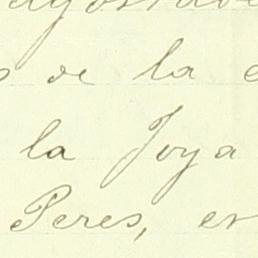 de la
la Joya
Peres, en